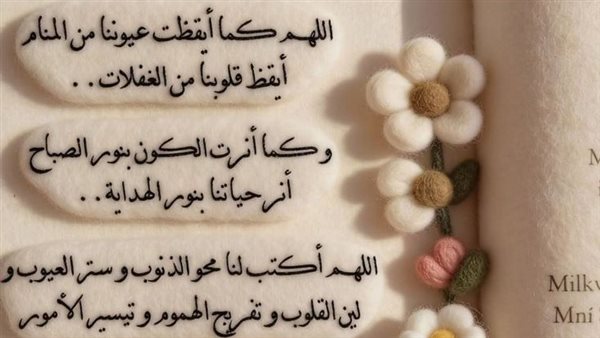 اللهم كما أيقظت عيوننا من المنام
أيقظ قلوبنا من الغفلات . .
و كما أنرت الكون بنور الصباح
أنر حياتنا بنور الهداية . .
اللهم أكتب لنا محو الذنوب و ستر العيوب و
لين القلوب و تفريج الهموم و تيسير الأمور
M
Milkw
Mní